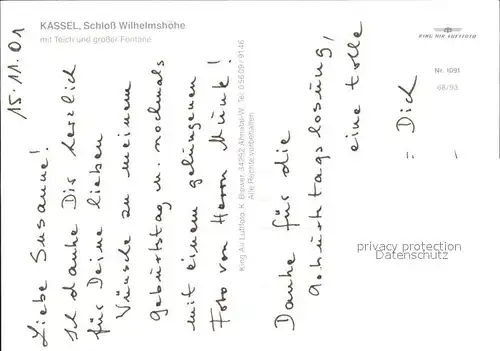 KASSEL, Schloß Wilhelmshöhe
mit Teich und großer Fontäne
KING AIR LUFTFOTO
Nr. 1091
68/93
King Air Luftfoto K. Brewer 34292 Ahnatal-W. Tel. 0 56 09 / 91 46
Alle Rechte vorbehalten
15.11.01
Liebe Susanne!
Ich danke Dir herzlich
für Deine lieben
Wünsche zu meinem
Geburtstag u. nochmals
mit einem gelungenen
Foto von Herrn Münk!
Danke für die
Geburtstagslosung,
eine tolle
= Dich
privacy protection
Datenschutz